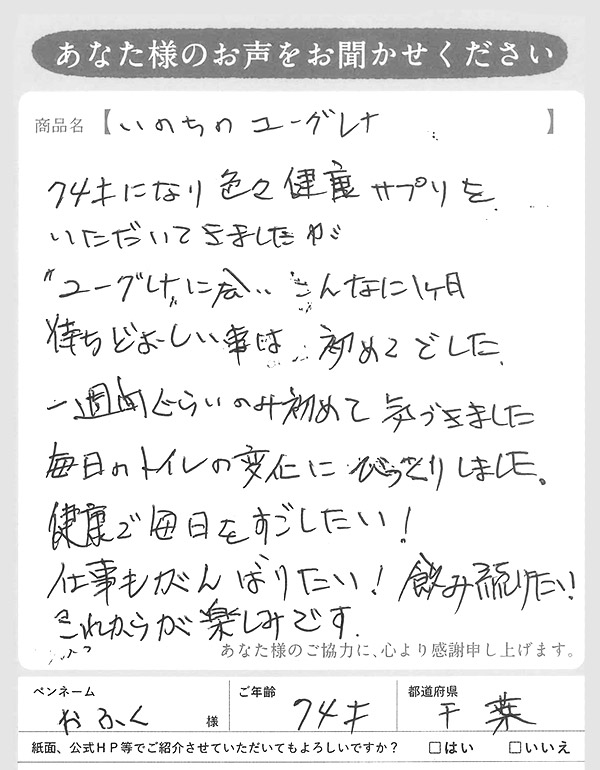 あなた様のお声をお聞かせください
商品名【いのちのユーグレナ】
74才になり色々健康サプリを
いただいてきましたが
"ユーグレナ"に会い こんなに1ヶ月
待ちどおしい事は 初めてでした。
一週間ぐらいのみ初めて 気づきました
毎日のトイレの変化に びっくりしました。
健康で毎日をすごしたい!
仕事もがんばりたい! 飲み続けたい!
これからが楽しみです。
あなた様のご協力に、心より感謝申し上げます。
ペンネーム ご年齢 都道府県
おふく 様 74才 千葉
紙面、公式HP等でご紹介させていただいてもよろしいですか? □はい □いいえ